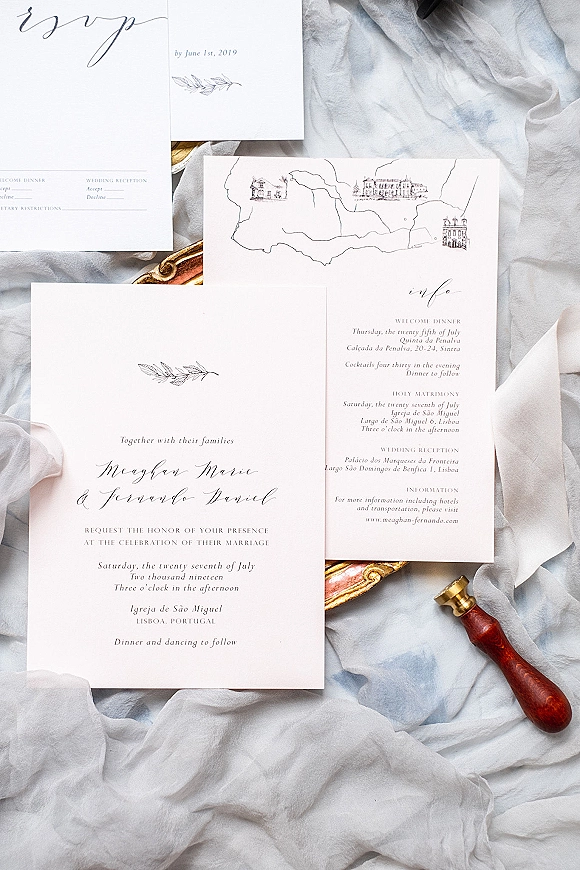 rsvp
WELCOME DINNER
WEDDING RECEPTION
Accept
Decline
DIETARY RESTRICTIONS
by June 1st, 2019
info
WELCOME DINNER
Thursday, the twenty fifth of July
Quinta da Penalva
Calçada da Penalva, 20-24, Sintra
Cocktails four thirty in the evening
Dinner to follow
HOLY MATRIMONY
Saturday, the twenty seventh of July
Igreja de São Miguel
Largo de São Miguel 6, Lisboa
Three o'clock in the afternoon
WEDDING RECEPTION
Palácio dos Marqueses da Fronteira
Largo São Domingos de Benfica 1, Lisboa
INFORMATION
For more information including hotels
and transportation, please visit
www.meaghan-fernando.com
Together with their families
Meaghan Marie
& Fernando Daniel
REQUEST THE HONOR OF YOUR PRESENCE
AT THE CELEBRATION OF THEIR MARRIAGE
Saturday, the twenty seventh of July
Two thousand nineteen
Three o'clock in the afternoon
Igreja de São Miguel
LISBOA, PORTUGAL
Dinner and dancing to follow